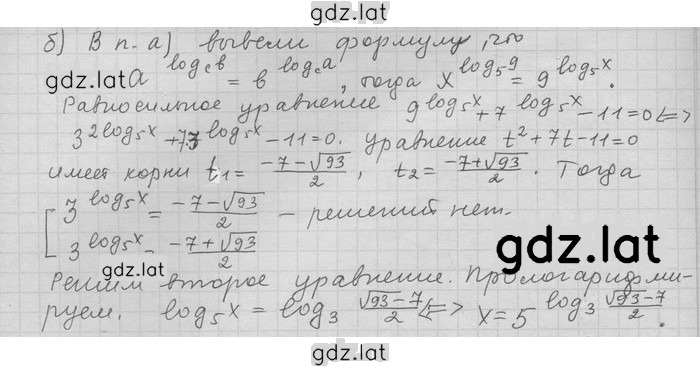 gdz.lat
б) В п. а) вывели формулу, что
gdz.lat a^{log_c b} = b^{log_c a}, тогда x^{log_5 9} = 9^{log_5 x}.
Равносильное уравнение 9^{log_5 x} + 7^{log_5 x} - 11 = 0 <=>
3^{2log_5 x} + 7·3^{log_5 x} - 11 = 0. Уравнение t^2 + 7t - 11 = 0
имеет корни t_1 = \frac{-7-\sqrt{93}}{2}, t_2 = \frac{-7+\sqrt{93}}{2}. Тогда
[ 3^{log_5 x} = \frac{-7-\sqrt{93}}{2} - решений нет.
3^{log_5 x} = \frac{-7+\sqrt{93}}{2}
gdz.lat
gdz.lat
Решим второе уравнение. Прологарифми-
руем. log_5 x = log_3 \frac{\sqrt{93}-7}{2} <=> x = 5^{log_3 \frac{\sqrt{93}-7}{2}}.
gdz.lat